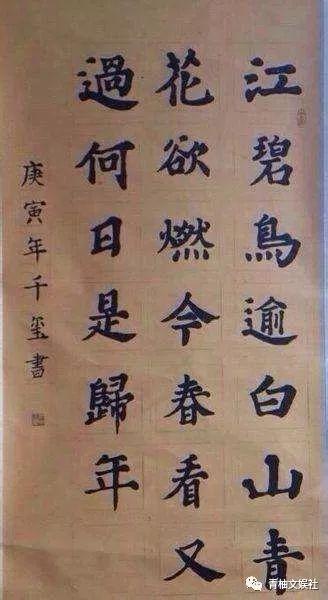 江碧鳥逾白山青
花欲燃今春看又
過何日是歸年
庚寅年千玺書
青柚文娱社